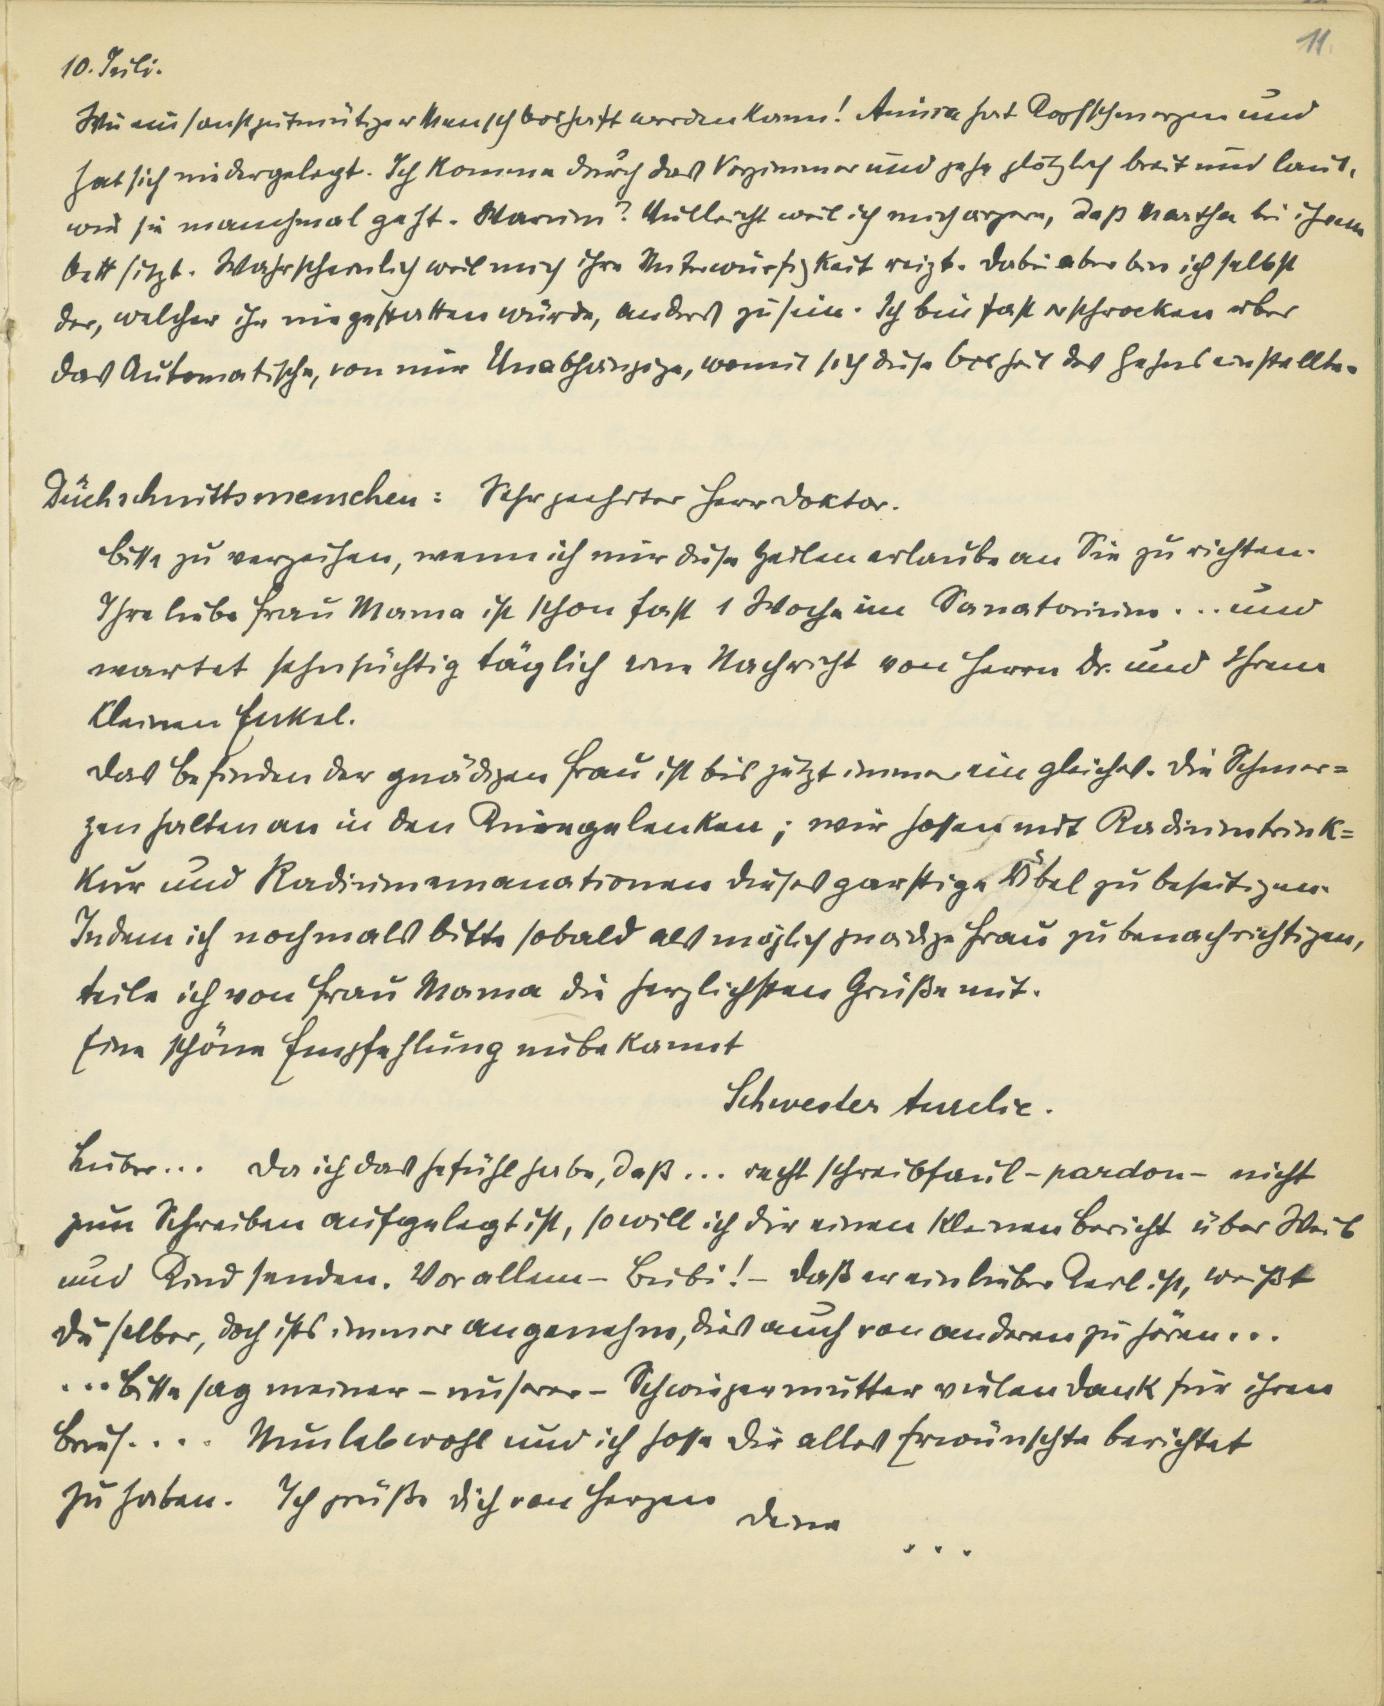 11.
10. Juli.
Wie ein sonst gutmütiger Mensch boshaft werden kann! Annina hat Kopfschmerzen und
hat sich niedergelegt. Ich komme durch das Vorzimmer und gehe plötzlich breit und laut,
wie sie manchmal geht. Warum? Vielleicht weil ich mich ärgere, daß Martha bei ihrem
Bett sitzt. Wahrscheinlich weil mich ihre Unterwürfigkeit reizt. Dabei aber bin ich selbst
der, welcher ihr nie gestatten würde, anders zu sein. Ich bin fast erschrocken über
das Automatische, von mir Unabhängige, womit sich diese Bosheit des Gehens einstellte.
Duchschnittsmenschen: Sehr geehrter Herr Doktor.
Bitte zu verzeihen, wenn ich mir diese Zeilen erlaube an Sie zu richten.
Ihre liebe Frau Mama ist schon fast 1 Woche im Sanatorium ... und
wartet sehnsüchtig täglich eine Nachricht von Herrn Dr. und Ihrem
kleinen Enkel.
Das Befinden der gnädigen Frau ist bis jetzt immer ein gleiches. Die Schmer=
zen halten an in den Kniegelenken; wir hoffen mit Radiumtrink=
kur und Radiumemanationen dieses garstige Übel zu beseitigen.
Indem ich nochmals bitte sobald als möglich gnädige Frau zu benachrichtigen,
teile ich von Frau Mama die herzlichsten Grüße mit.
Eine schöne Empfehlung unbekannt
Schwester Aurelie.
Lieber ... Da ich das Gefühl habe, daß ... recht schreibfaul - pardon - nicht
zum Schreiben aufgelegt ist, so will ich dir einen kleinen Bericht über Weib
und Kind senden. Vor allem - Beibi! - daß er ein lieber Kerl ist, weißt
du selber, doch ists immer angenehm, dies auch von anderen zu hören ...
... Bitte sag meiner - unserer - Schwiegermutter vielen Dank für ihren
Brief .... Nun leb wohl und ich hoffe dir alles Erwünschte berichtet
zu haben. Ich grüße dich von Herzen
Deine
...